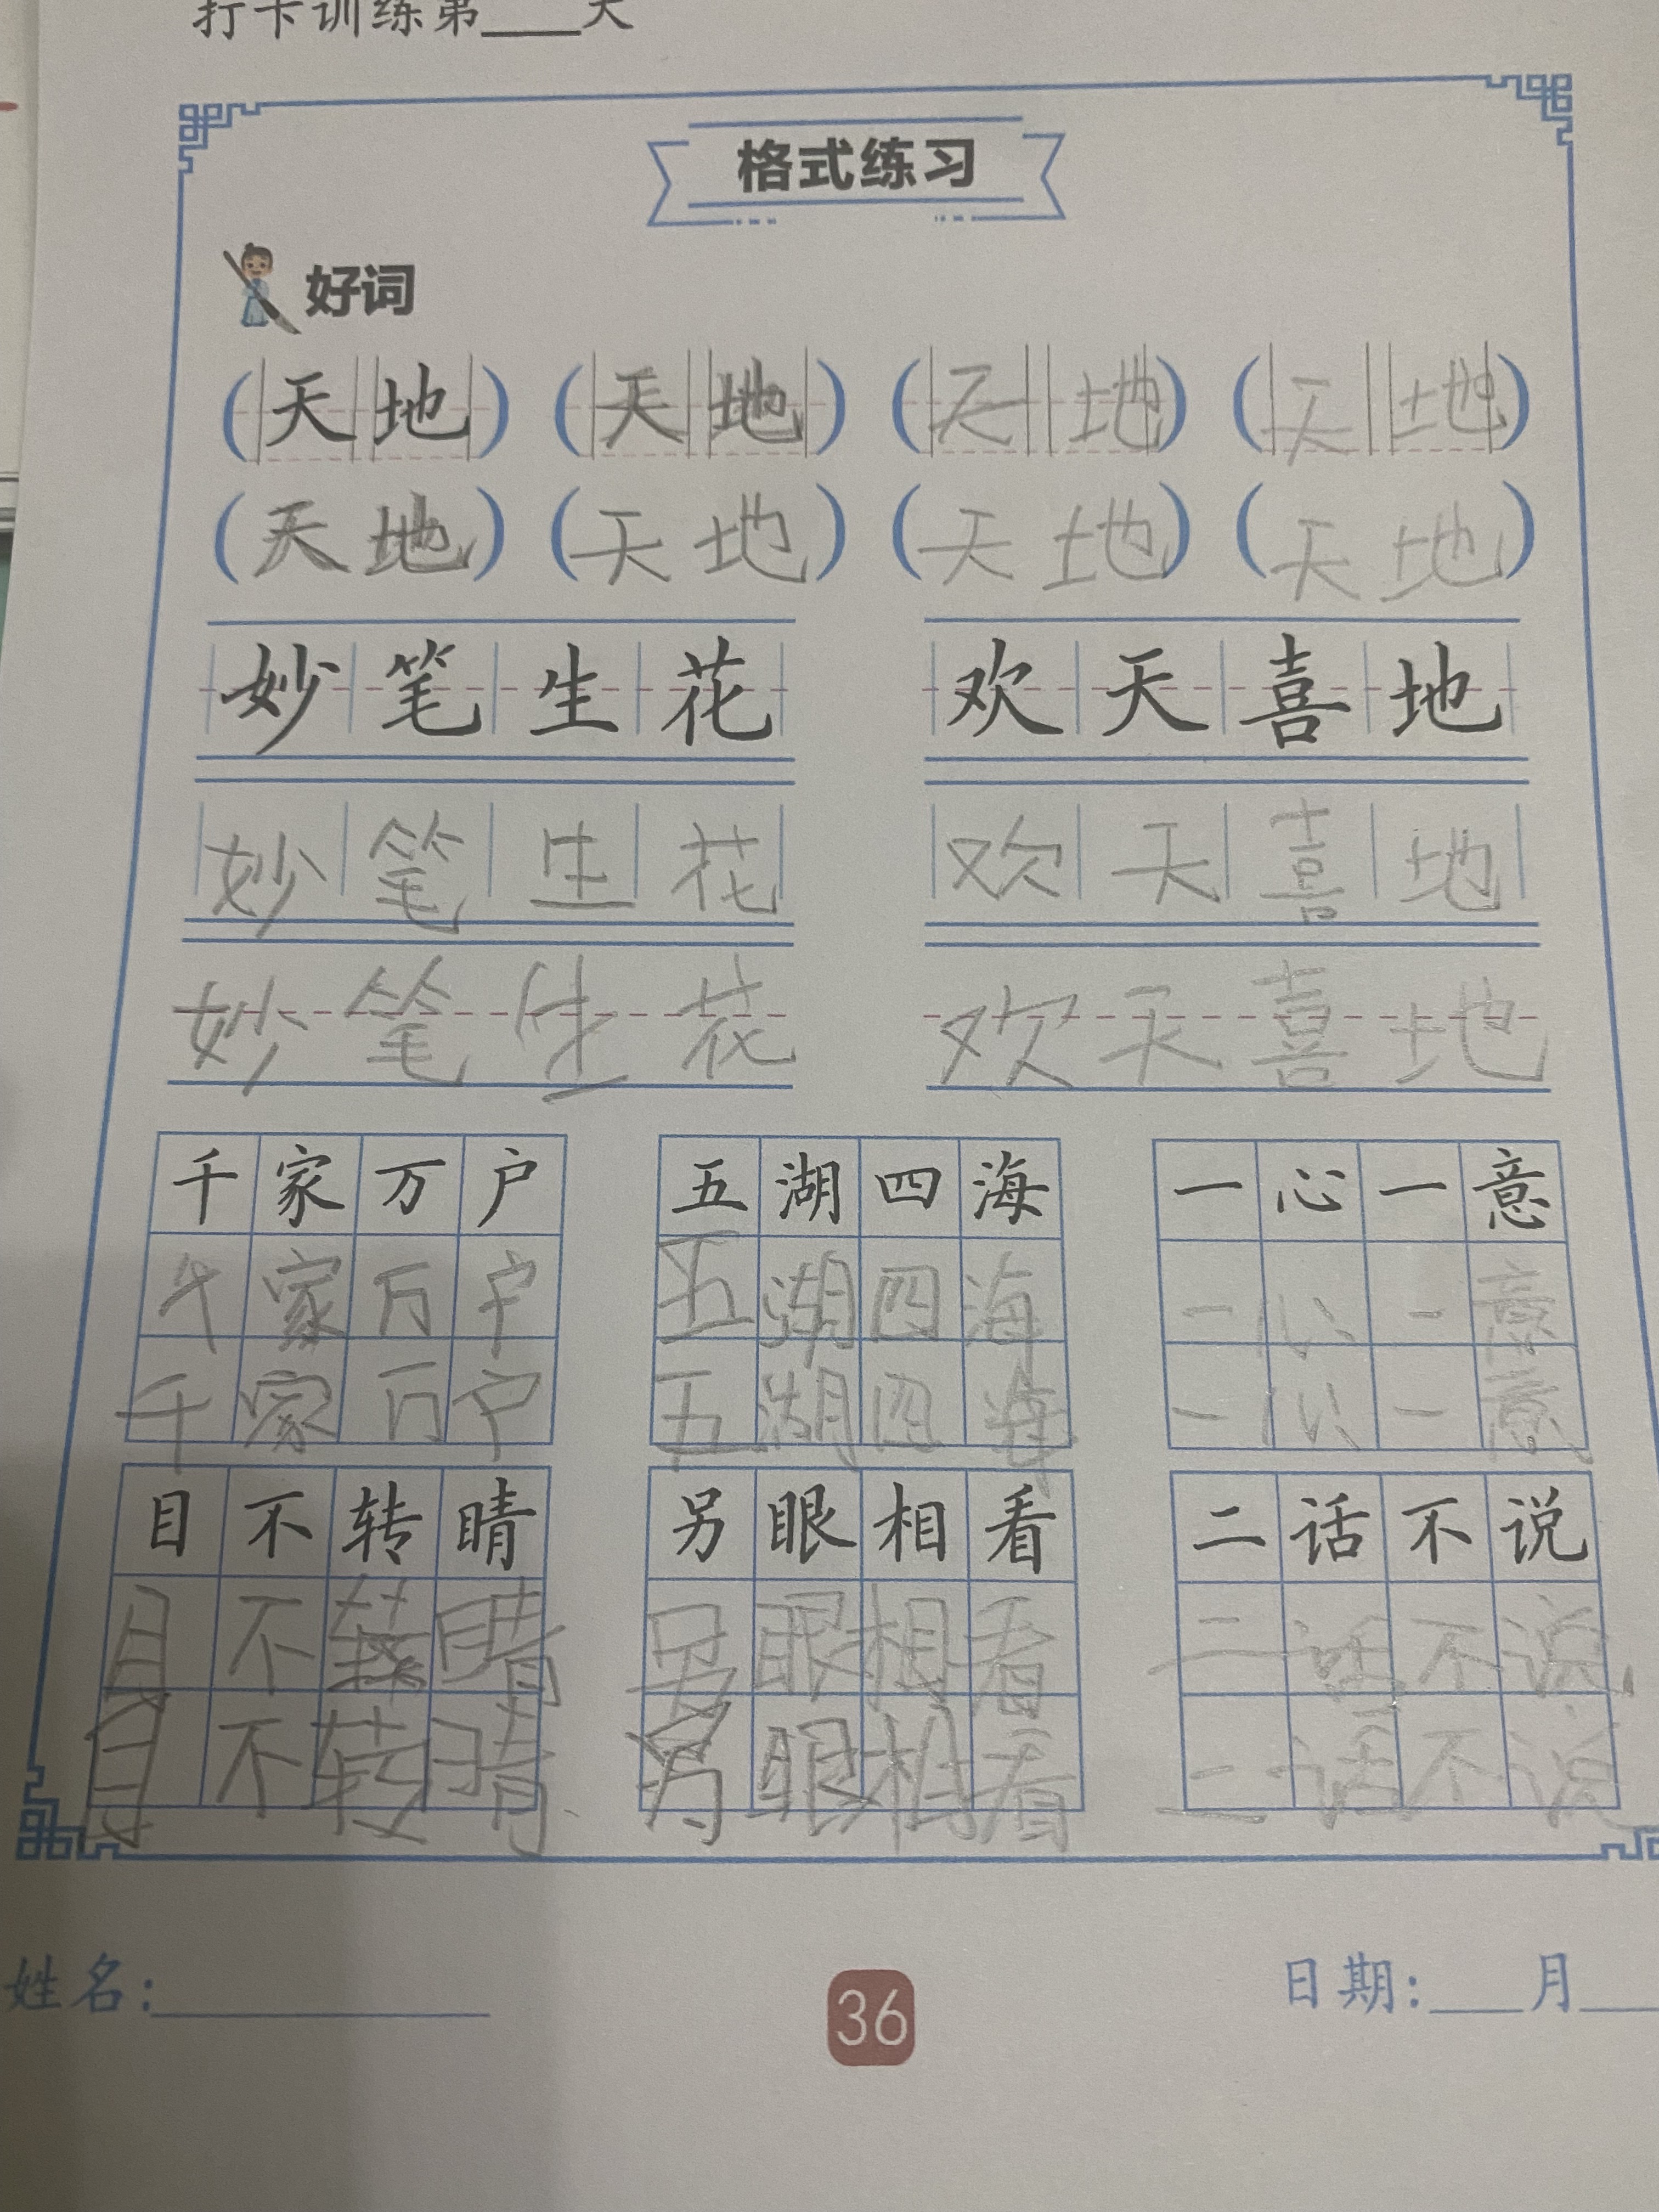 打卡训练第____天
格式练习
好词
(天地) (天地) (天地) (天地)
(天地) (天地) (天地) (天地)
妙笔生花 欢天喜地
妙笔生花 欢天喜地
妙笔生花 欢天喜地
千家万户 五湖四海 一心一意
千家万户 五湖四海 一心一意
千家万户 五湖四海 一心一意
目不转睛 另眼相看 二话不说
目不转睛 另眼相看 二话不说
目不转睛 另眼相看 二话不说
姓名:____ 36 日期:___月___